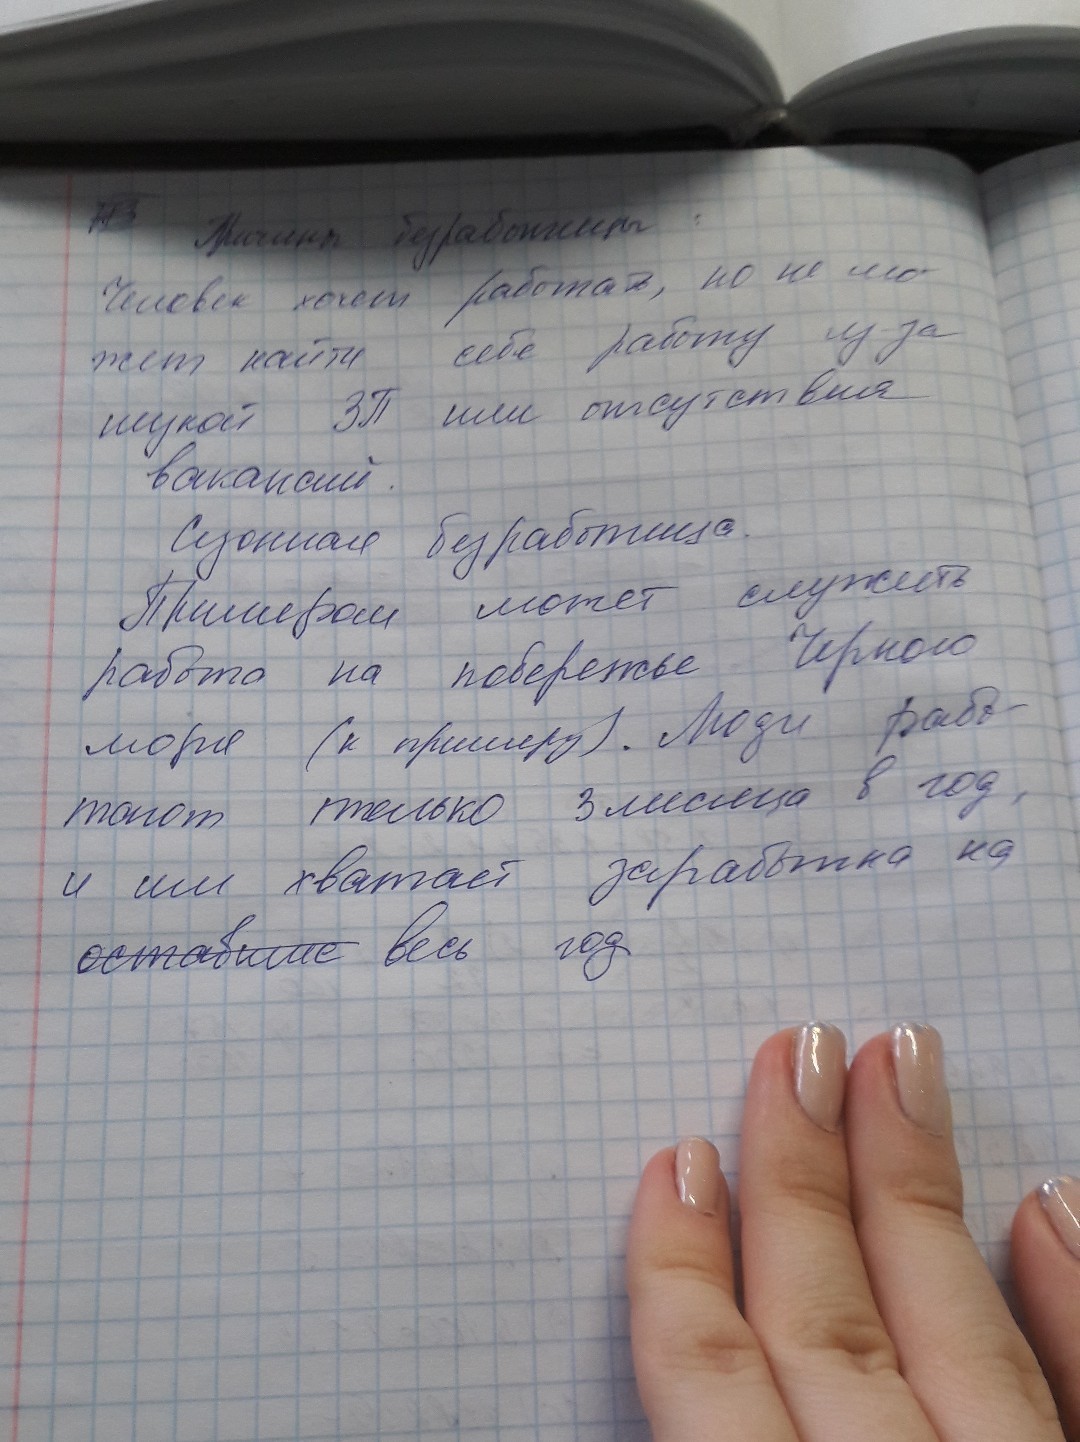 Причины безработицы :
Человек хочет работать, но не мо-
жет найти себе работу из-за
низкой ЗП или отсутствия
вакансий.
Сезонная безработица.
Примером может служить
работа на побережье Черного
моря (к примеру). Люди рабо-
тают только 3 месяца в год,
и им хватает заработка на
оставшие весь год